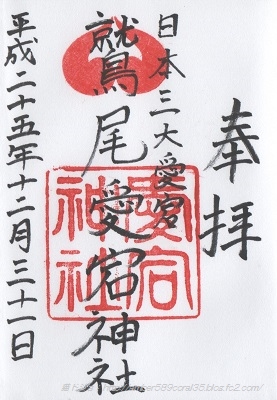 奉拝
日本三大愛宕
鷲尾愛宕神社
愛宕神社
平成二十五年十二月三十一日